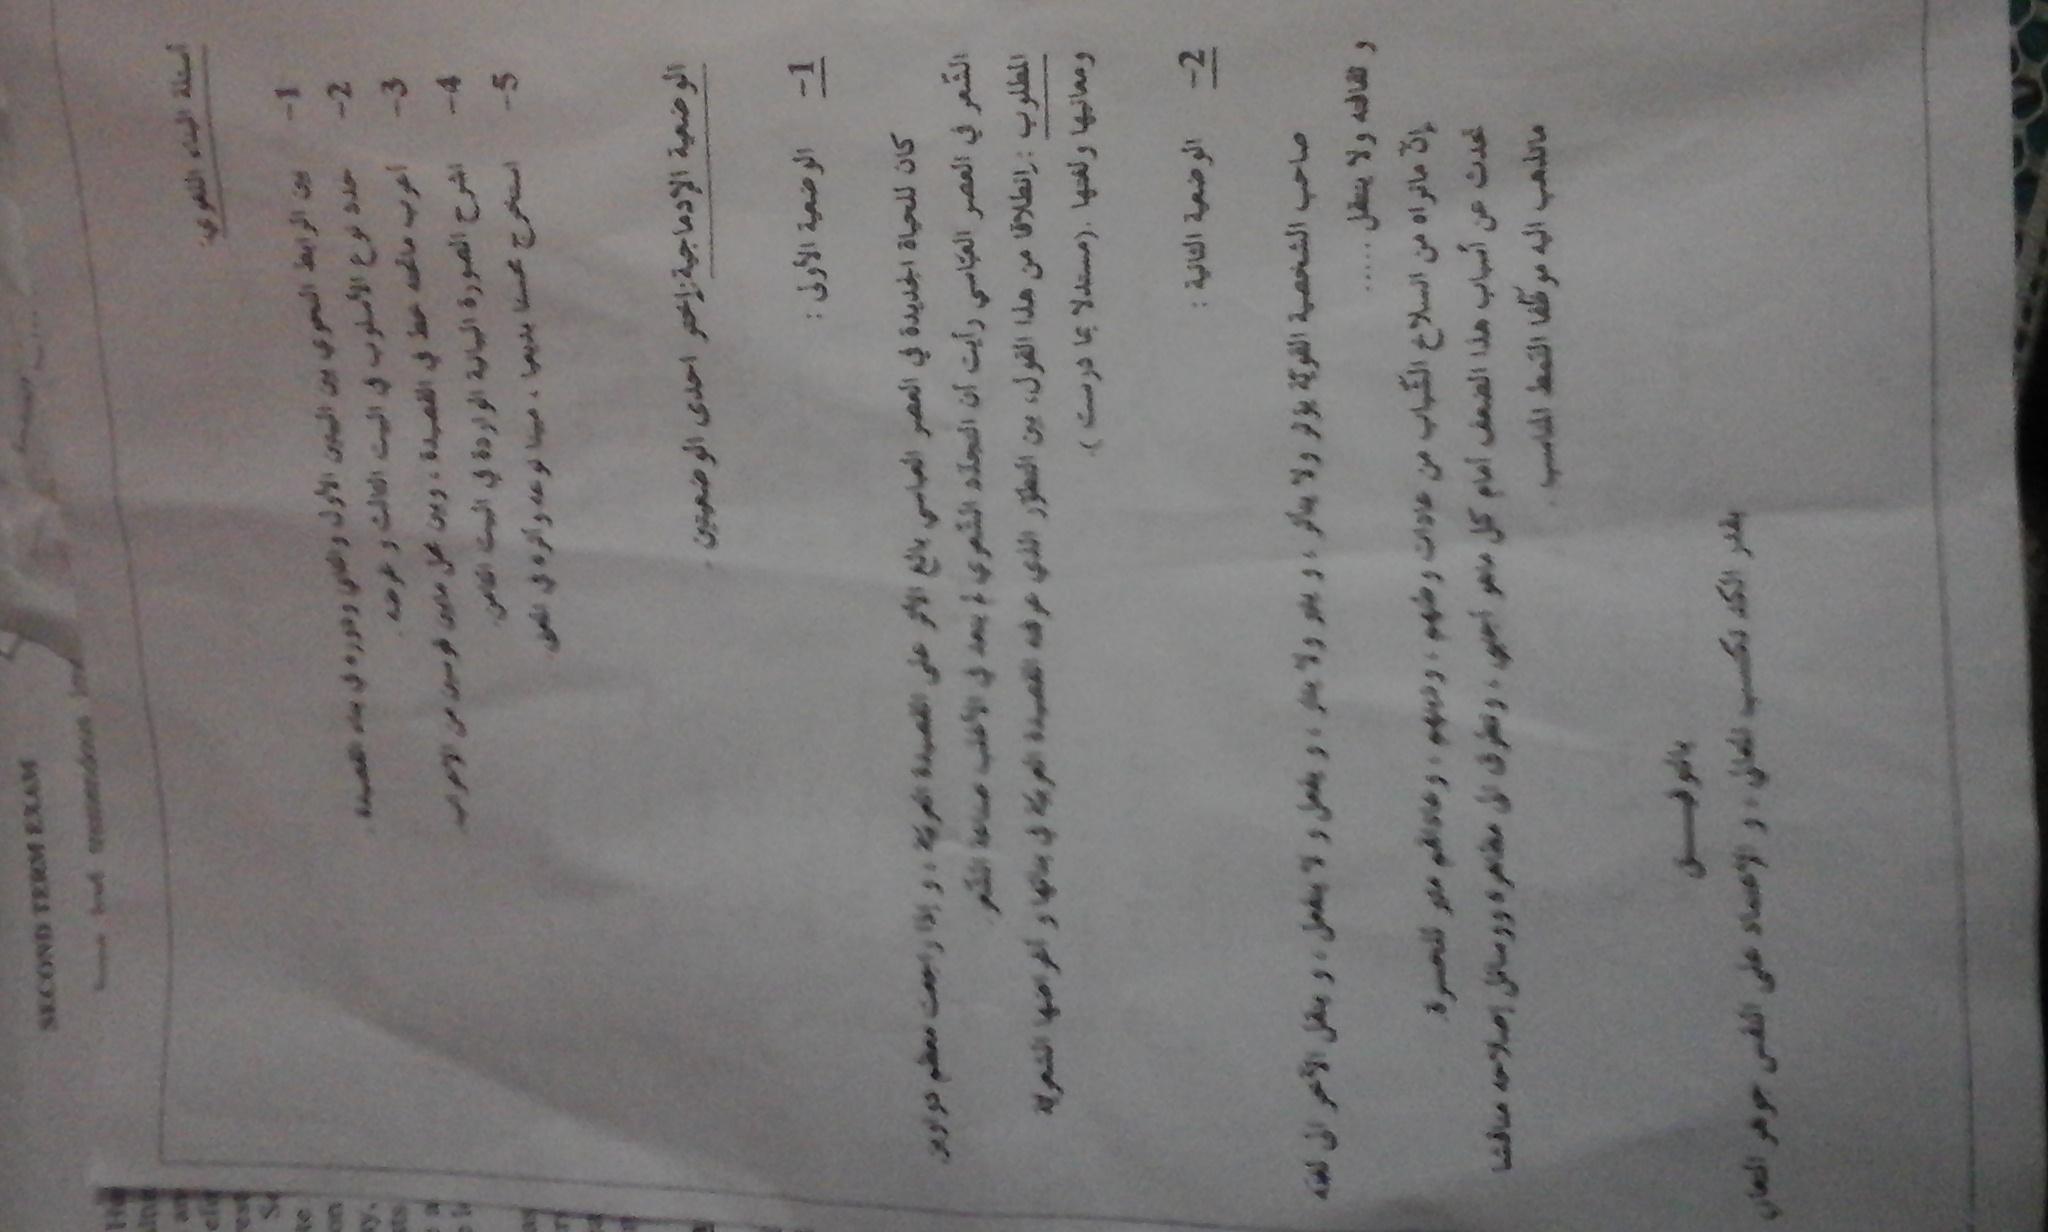 SECOND TERM EXAM
أسئلة البناء اللغوي:
1- بين الرابط النحوي بين البيتين الأول والثاني ودوره في بناء القصيدة.
2- حدد نوع الأسلوب في البيت الثالث و غرضه.
3- أعرب ماتحته خط في القصيدة، وبين محل مابين قوسين من الإعراب.
4- اشرح الصورة البيانية الواردة في البيت الثامن.
5- استخرج محسنا بديعيا، مبينا نوعه وأثره في المعنى
الوضعية الإدماجية: إختر احدى الوضعيتين.
1- الوضعية الأولى:
كان للحياة الجديدة في العصر العباسي بالغ الأثر على القصيدة العربيّة، و إذا راجعت معظم دواوين
الشّعر في العصر العبّاسي رأيت أن التجدّد الشّعري لم يتعد في الأغلب صناعة الشّعر
المطلوب: إنطلاقا من هذا القول، بين التطوّر الذي عرفته القصيدة العربيّة في بنائها و أغراضها الشعريّة
ومعانيها ولغتها. (مستدلا بما درست).
2- الوضعية الثانية:
صاحب الشخصية القويّة يؤثر ولا يتأثر، و يغير ولا يتغير، و يفعل و لا ينفعل، و ينقل الآخر الى لغته
و ثقافته ولا ينتقل.....
إنّ مانراه من انسلاخ الشّباب من عادات وطنهم، ودينهم، وعاداتهم مثير للحسرة
تحدث عن أسباب هذا الضعف أمام كل ماهو أجنبي، وتطرق الى مظاهره ووسائل إصلاحه مناقشا
ماتذهب اليه موظّفا النّمط المناسب.
بالتوفيـــق
بقدر الكد تكتسب المعالي، و الإعتماد على النفس جوهر المعاني